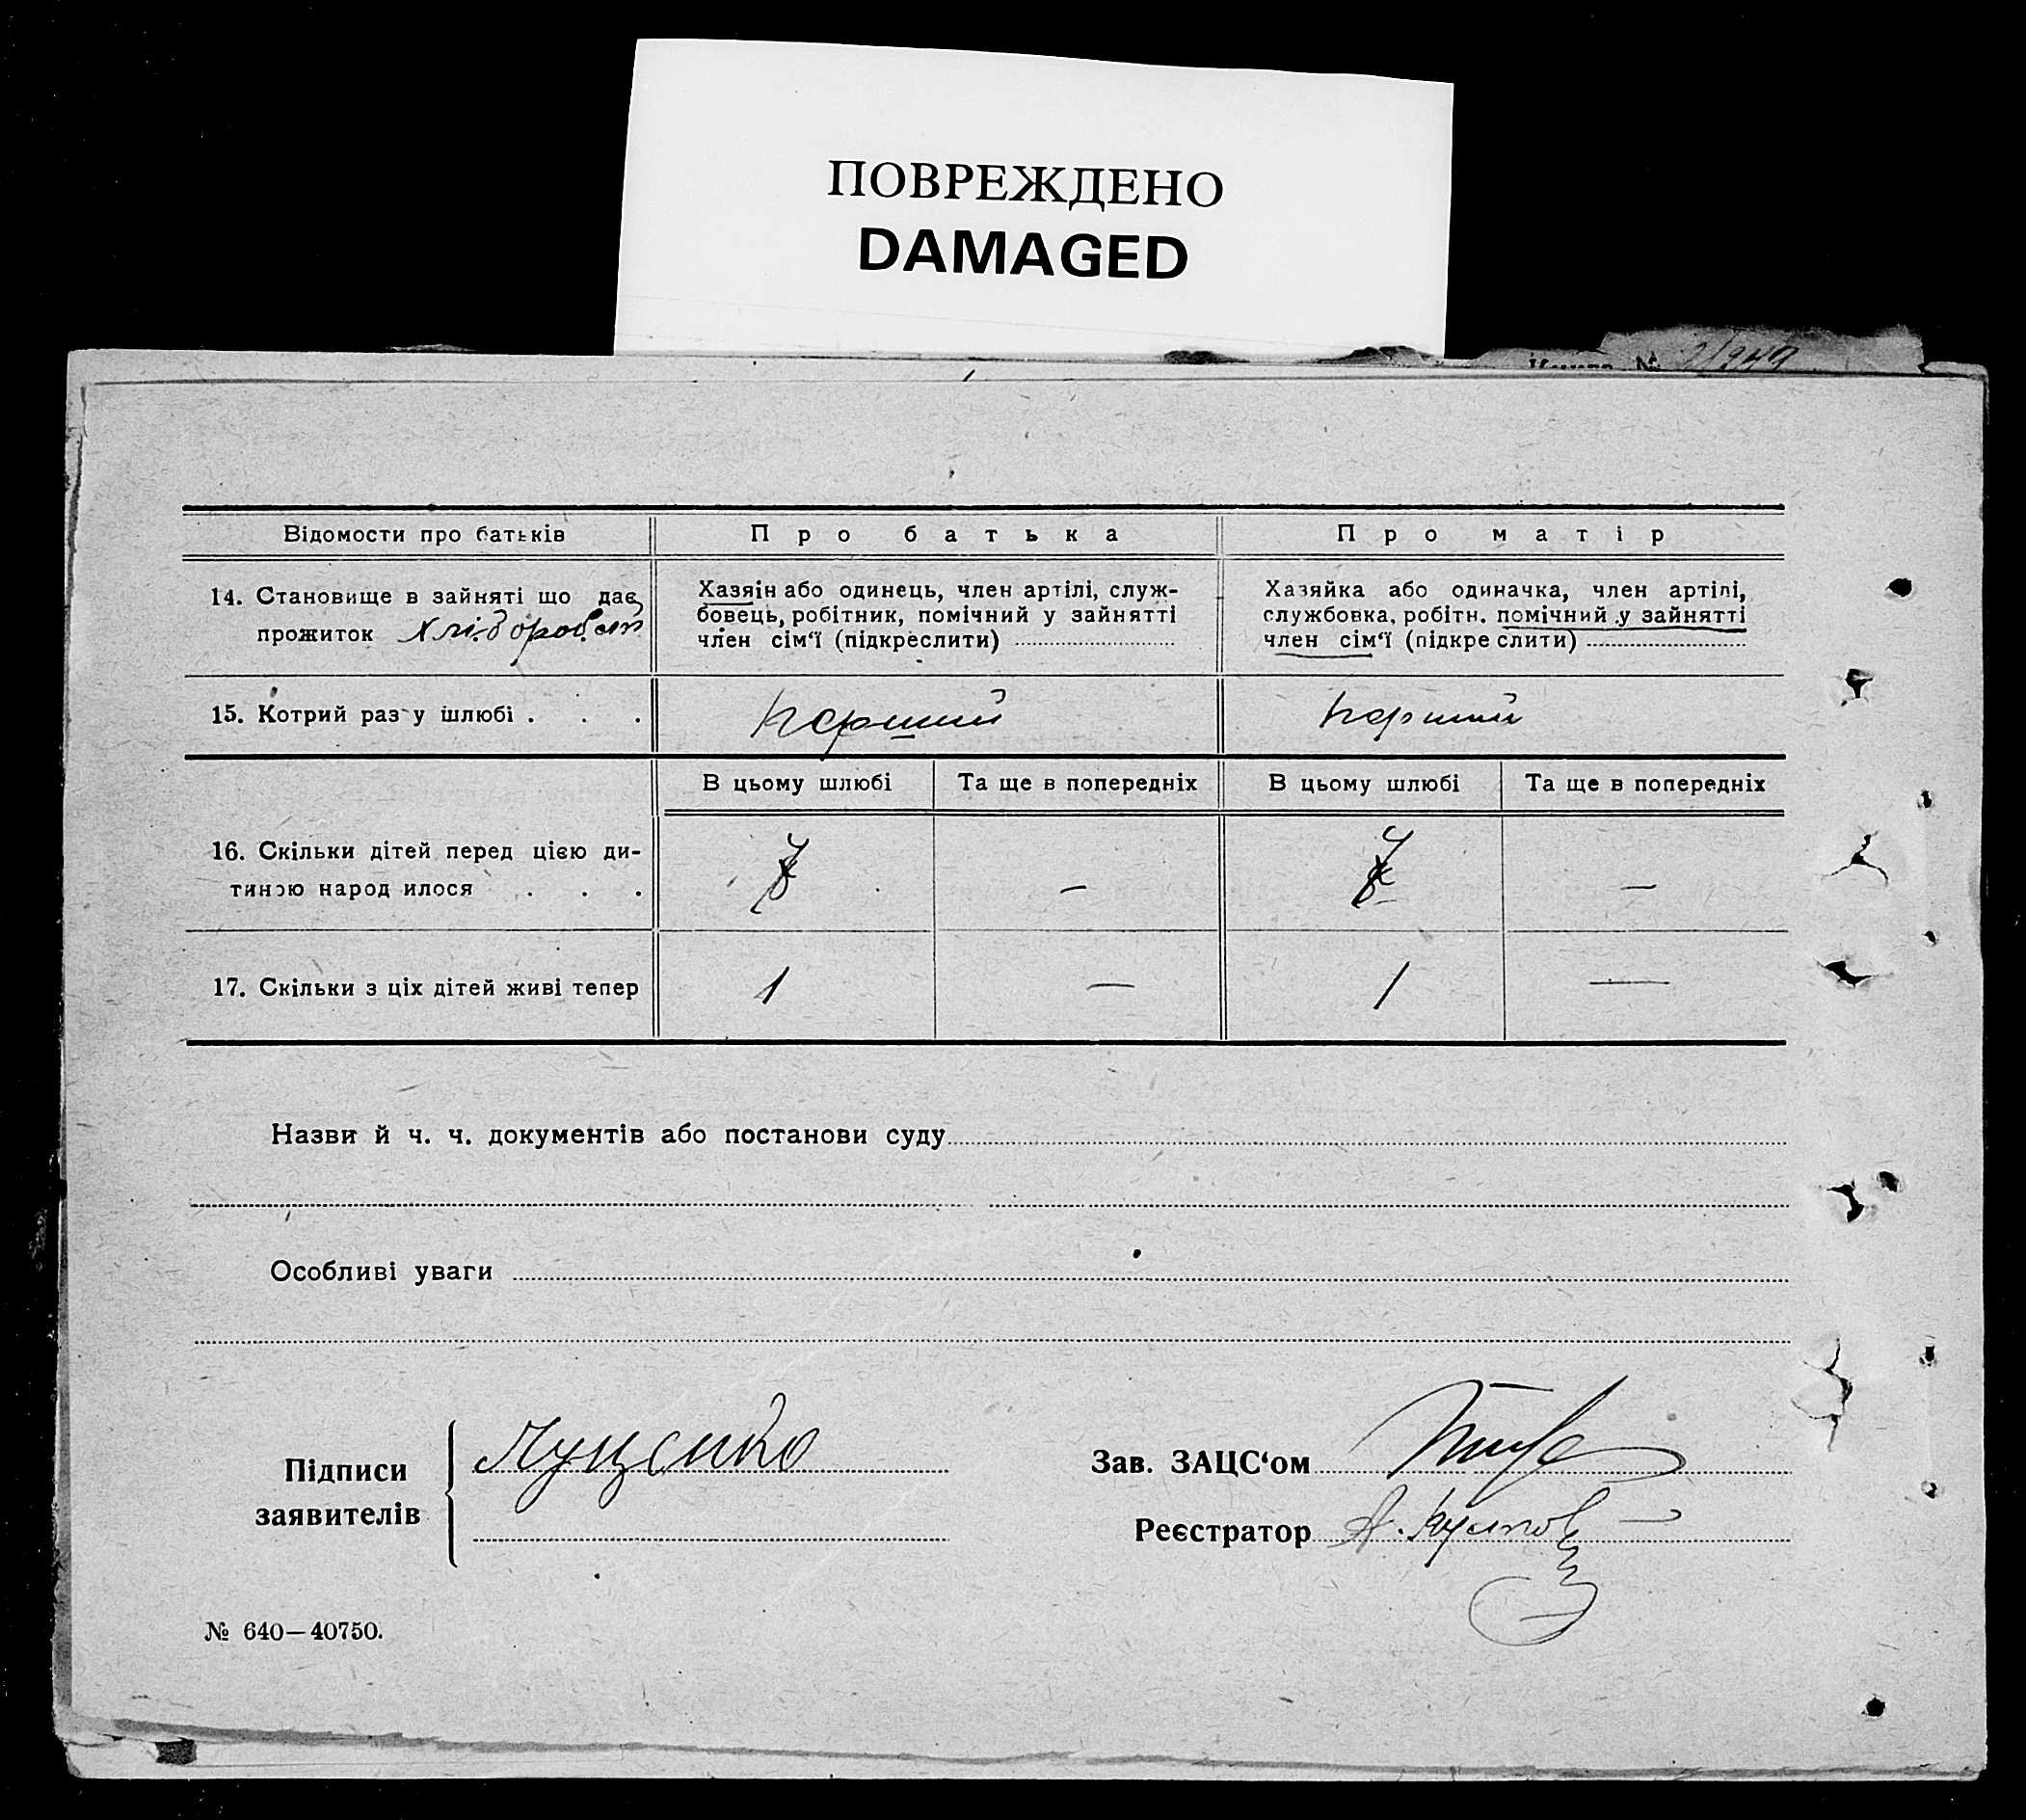 ПОВРЕЖДЕНО
DAMAGED
Книга №
Відомости про батьків
Про батька
Про матір
14. Становище в зайняті що дає
прожиток хлібороб
Хазяін або одинець, член артілі, служ-
бовець, робітник, помічний у зайнятті
член сім'ї (підкреслити)
Хазяйка або одиначка, член артілі,
службовка, робітн. помічний у зайнятті
член сім'ї (підкреслити)
15. Котрий раз у шлюбі . . .
перший
перший
В цьому шлюбі
Та ще в попередніх
В цьому шлюбі
Та ще в попередніх
16. Скільки дітей перед цією ди-
тиною народилося . . .
—
—
17. Скільки з ціх дітей живі тепер
1
—
1
—
Назви й ч. ч. документів або постанови суду
Особливі уваги
Підписи
заявителів
Луценко
Зав. ЗАЦС'ом
Реєстратор А.
№ 640—40750.